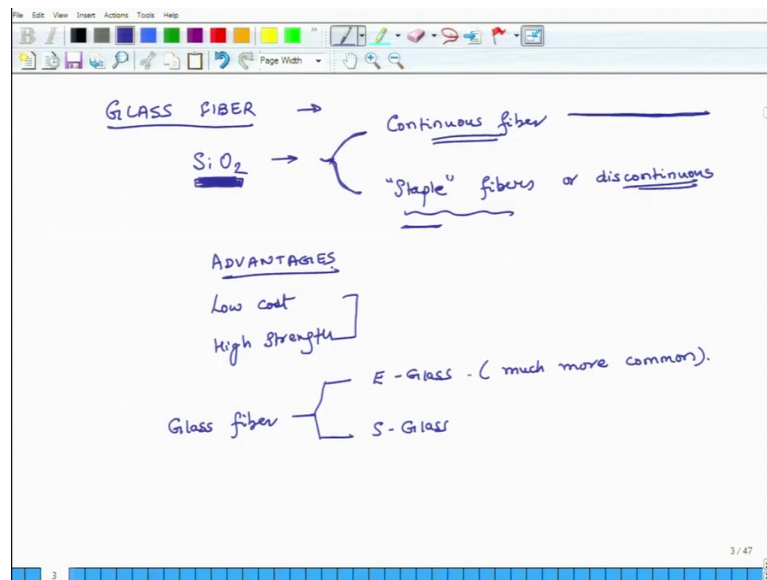 File Edit View Insert Actions Tools Help
B I
Page Width
GLASS FIBER →
Continuous fiber
SiO2 →
"Staple" fibers or discontinuous
ADVANTAGES
Low cost
High Strength
E-Glass - (much more common).
Glass fiber
S-Glass
3 / 47
3